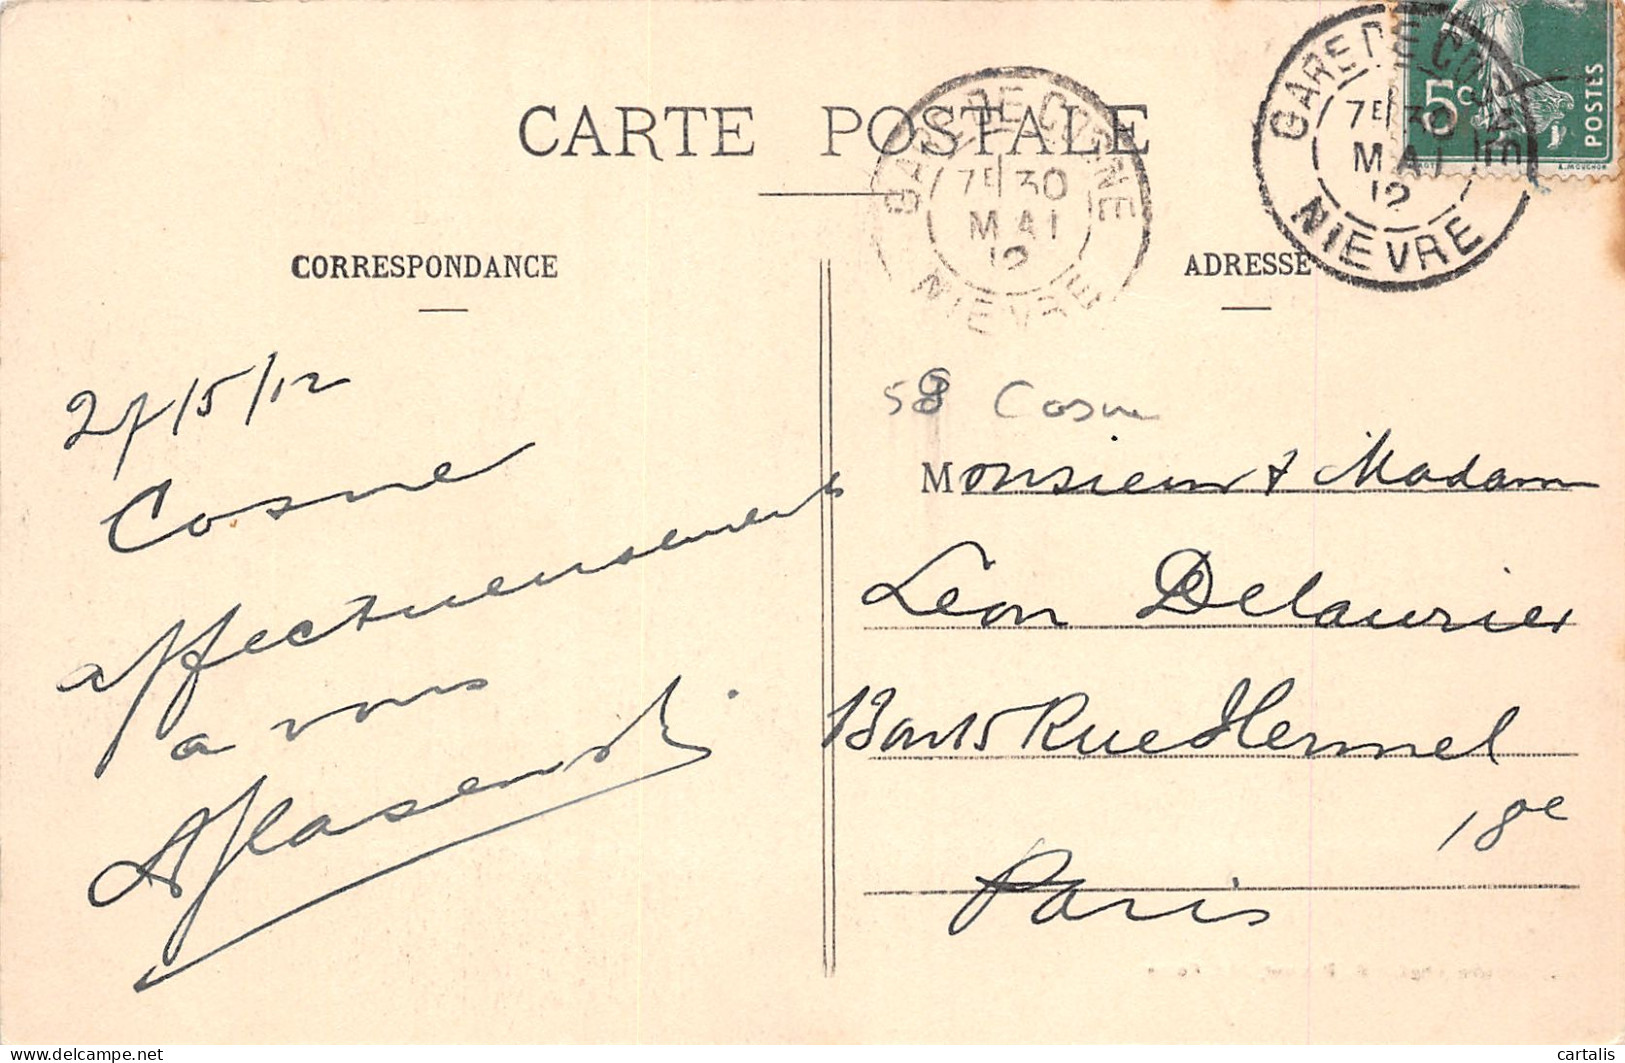 CARTE POSTALE
GARE DE COSNE
7E 30
MAI
12
NIEVRE
GARE DE COSNE
7E 30
MAI
12
NIEVRE
5c
POSTES
CORRESPONDANCE
ADRESSE
27/5/12
Cosne
affectueusement
a vous
58 Cosne
Monsieur & Madame
Léon Delaurier
Rue Hermel
18e
Paris
cartalis
delcampe.net